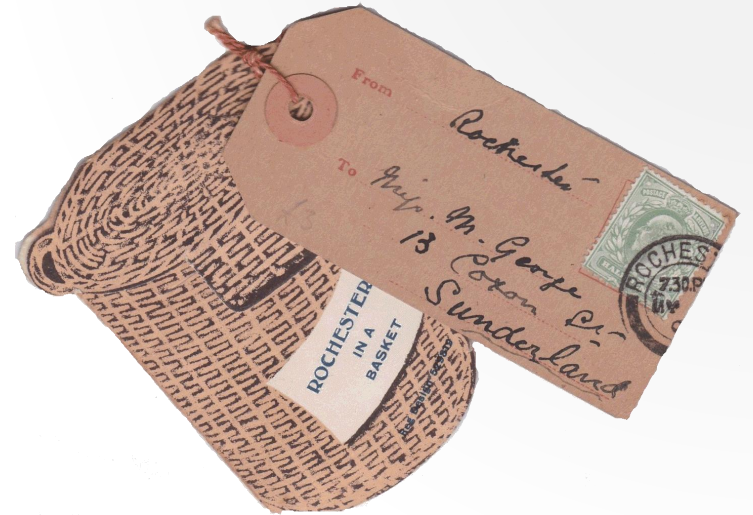 From Rochester
To Miss. M. George
13 Coxon St
Sunderland
ROCHES
7.30.P
ROCHESTER
IN A
BASKET